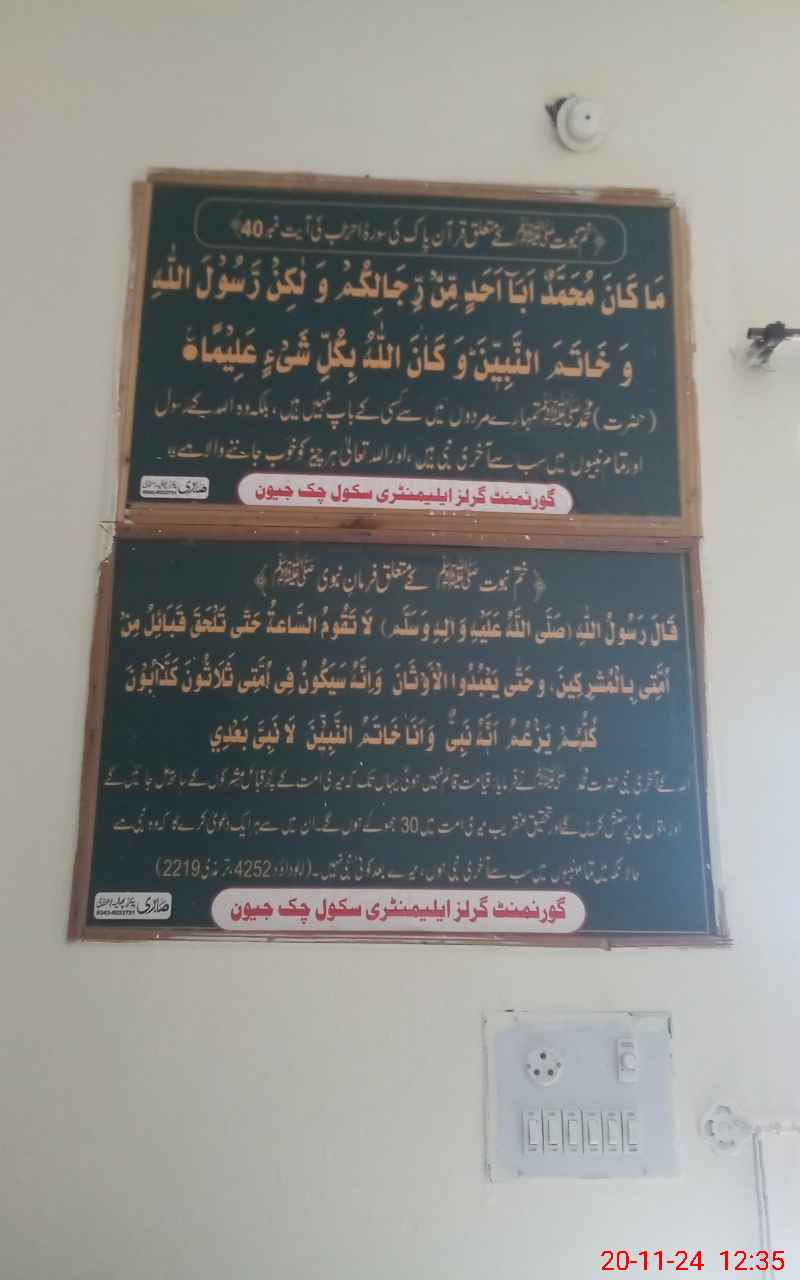 ختم نبوت ﷺ کے متعلق قرآن پاک کی سورۃ احزاب کی آیت نمبر 40
مَا كَانَ مُحَمَّدٌ اَبَآ اَحَدٍ مِّنْ رِّجَالِكُمْ وَ لٰكِنْ رَّسُوْلَ اللّٰهِ
وَ خَاتَمَ النَّبِيّٖنَ ؕ وَ كَانَ اللّٰهُ بِكُلِّ شَیْءٍ عَلِيْمًا
(حضرت) محمد ﷺ تمہارے مردوں میں سے کسی کے باپ نہیں ہیں، بلکہ وہ اللہ کے رسول
اور تمام نبیوں میں سب سے آخری نبی ہیں، اور اللہ تعالیٰ ہر چیز کو خوب جاننے والا ہے
صابری
گورنمنٹ گرلز ایلیمنٹری سکول چک جیون
ختم نبوت ﷺ کے متعلق فرمان نبوی ﷺ
قَالَ رَسُوْلُ اللّٰهِ (صَلَّى اللّٰهُ عَلَيْهِ وَ الِهٖ وَسَلَّم) لَا تَقُوْمُ السَّاعَةُ حَتّٰى تَلْحَقَ قَبَائِلُ مِنْ
اُمَّتِى بِالْمُشْرِكِيْنَ، وحَتّٰى يَعْبُدُوا الْاَوْثَانَ وَاِنَّهٗ سَيَكُوْنُ فِى اُمَّتِى ثَلَاثُوْنَ كَذَّابُوْنَ
كُلُّهُمْ يَزْعُمُ اَنَّهٗ نَبِىٌّ وَاَنَا خَاتَمُ النَّبِيّٖنَ لَا نَبِىَّ بَعْدِي
کے آخری نبی حضرت محمد ﷺ نے فرمایا: قیامت قائم نہیں ہوگی یہاں تک کہ میری امت کے کچھ قبائل مشرکوں کے ساتھ مل جائیں گے
اور بتوں کی پرستش کریں گے اور تحقیق عنقریب میری امت میں 30 جھوٹے ہوں گے۔ ان میں سے ہر ایک دعویٰ کرے گا کہ وہ نبی ہے
حالانکہ میں تمام نبیوں میں سب سے آخری نبی ہوں، میرے بعد کوئی نبی نہیں۔ (ابوداؤد 4252، ترمذی 2219)
صابری
0343-6033731
گورنمنٹ گرلز ایلیمنٹری سکول چک جیون
20-11-24 12:35